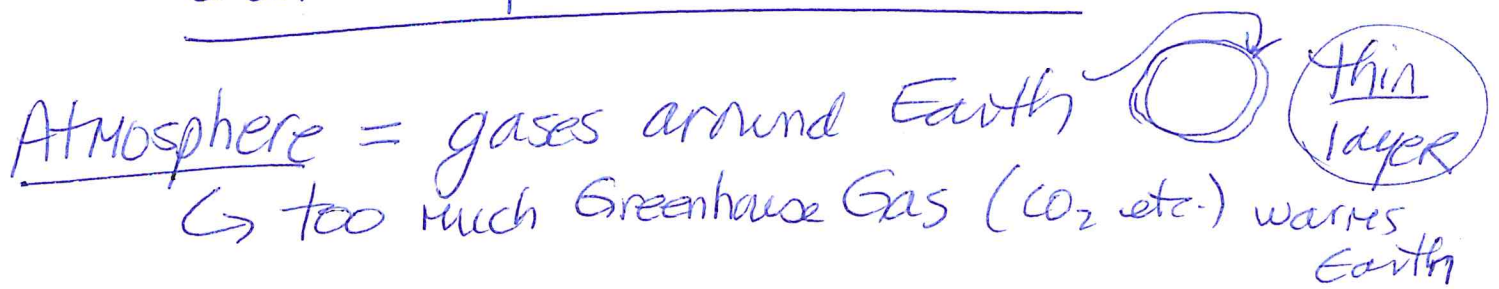 Atmosphere = gases around Earth
thin
layer
↳ too much Greenhouse Gas (CO₂ etc.) warms
Earth